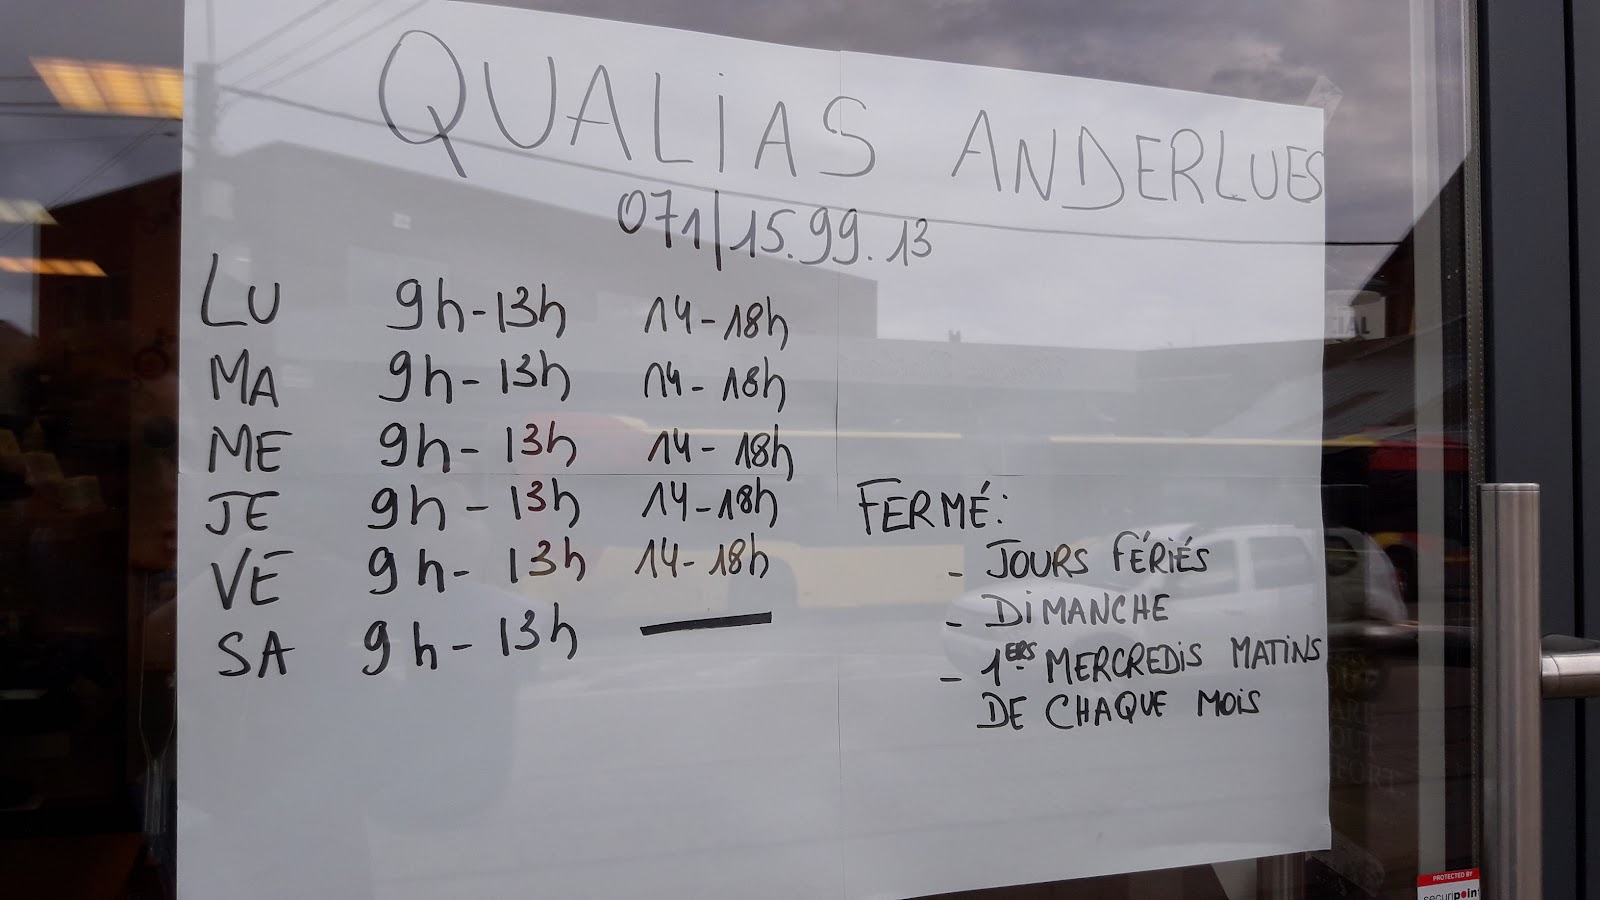 QUALiAS ANDERLUES
071/15.99.13
LU 9h-13h 14-18h
MA 9h-13h 14-18h
ME 9h-13h 14-18h
JE 9h-13h 14-18h
VE 9h-13h 14-18h
SA 9h-13h —
FERMÉ:
- JOURS FÉRIÉS
- DiMANCHE
- 1ERS MERCREDiS MATiNS
DE CHAQUE MOiS
CIAL
PROTECTED BY
securipoint